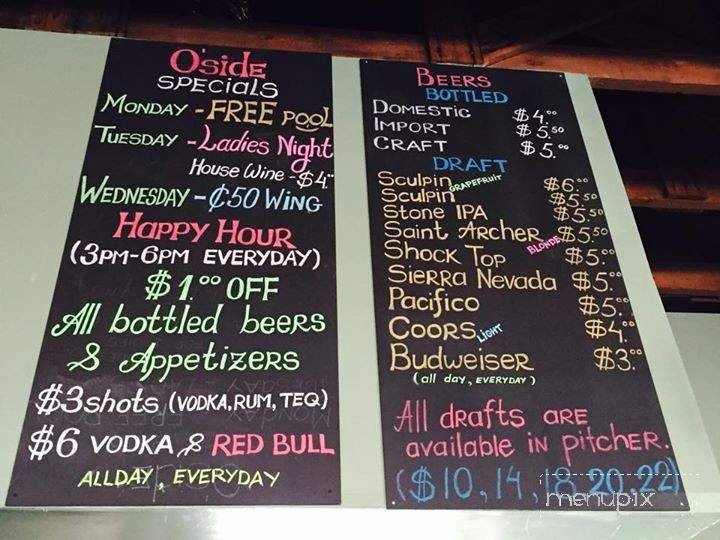 O'SIDE
SPECIALS
MONDAY - FREE POOL
TUESDAY - LADIES NIGHT
HOUSE WINE - $4.00
WEDNESDAY - ¢50 WING
HAPPY HOUR
(3PM-6PM EVERYDAY)
$1.00 OFF
All bottled beers
& APPETIZERS
$3 shots (VODKA, RUM, TEQ)
$6 VODKA & RED BULL
ALLDAY, EVERYDAY
BEERS
BOTTLED
DOMESTIC $4.00
IMPORT $5.50
CRAFT $5.00
DRAFT
Sculpin GRAPEFRUIT $6.00
Sculpin $5.50
Stone IPA $5.50
Saint Archer BLONDE $5.50
Shock Top $5.00
Sierra Nevada $5.00
Pacifico $5.00
Coors LIGHT $4.00
Budweiser $3.00
(all day, EVERYDAY)
All drafts ARE
available in pitcher.
($10, 14, 18, 20, 22)
menupix